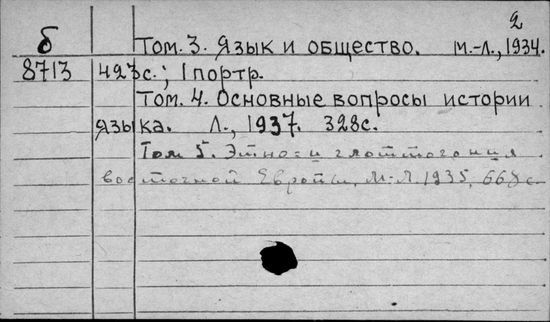 2
б Том. 3. Язык и общество. М.-Л., 1934.
8713 423с.; 1 портр.
Том. 4. Основные вопросы истории
языка. Л., 1937. 328с.
Том 5. Этно- и глоттогония
восточной Европы, М.-Л. 1935, 668с.